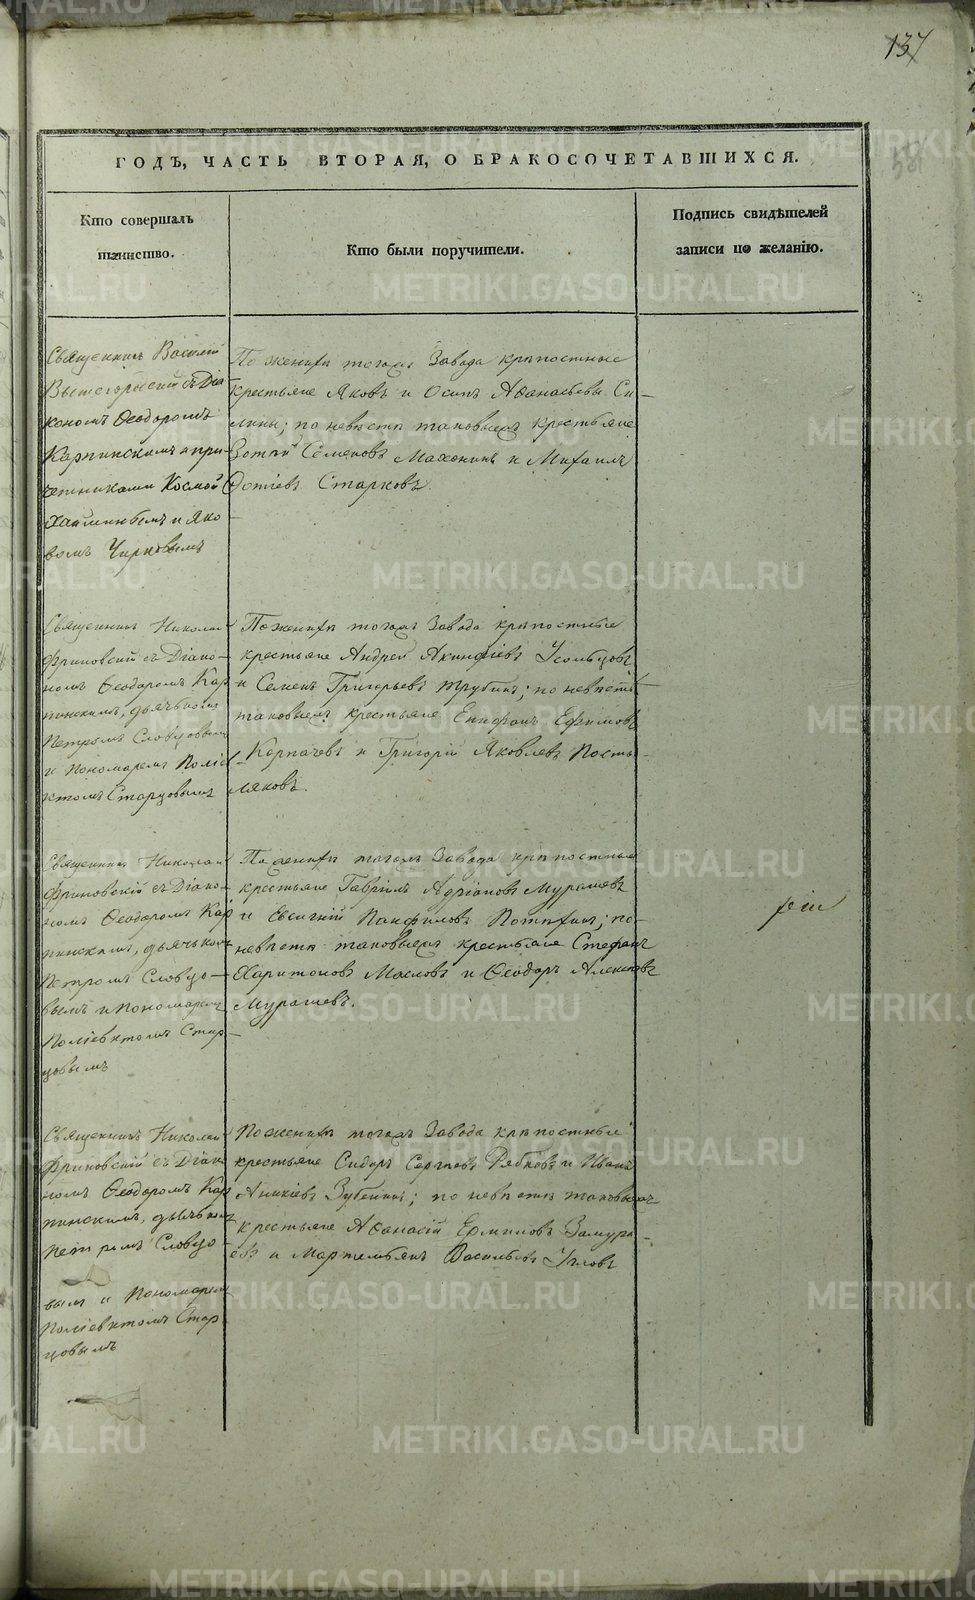 137
58
ГОДЪ, ЧАСТЬ ВТОРАЯ, О БРАКОСОЧЕТАВШИХСЯ.
Кто совершалъ
таинство.
Кто были поручители.
Подпись свидѣтелей
записи по желанію.
Священникъ Василій
съ Діа-
кономъ Ѳеодоромъ
Карпинскимъ и при-
четниками Космой
и Яко
вомъ Чирковымъ
По женихѣ тогожъ Завода крѣпостные
крестьяне Яковъ и Осипъ Аѳанасьевы Си-
лины; по невѣстѣ таковыежъ крестьяне
Зотій Семеновъ Махонинъ и Михаилъ
Фотіевъ Старковъ.
Священникъ Николай
Фриновскій съ Діако-
номъ Ѳеодоромъ Кар
пинскимъ, дьячькомъ
Петромъ Словцовымъ
и Пономаремъ Поліе
ктомъ Старцовымъ
По женихѣ тогожъ Завода крѣпостные
крестьяне Андрей Акинфіевъ Усольцовъ
и Семенъ Григорьевъ Трубинъ; по невѣстѣ
таковыежъ крестьяне Епифанъ Ефимовъ
Корпачевъ и Григорій Яковлевъ Посты-
ляковъ.
Священникъ Николай
Фриновскій съ Діако-
номъ Ѳеодоромъ Кар
пинскимъ, дьячькомъ
Петромъ Словцо-
вымъ и Пономаремъ
Поліевктомъ Стар-
цовымъ
По женихѣ тогожъ Завода крѣпостные
крестьяне Гаврилъ Адріановъ Мурашевъ
и Евсигній Панфиловъ Потахинъ; по
невѣстѣ таковыежъ крестьяне Стефанъ
Харитоновъ Масловъ и Ѳеодоръ Алексѣевъ
Мурашевъ.
Священникъ Николай
Фриновскій съ Діако
номъ Ѳеодоромъ Кар
пинскимъ, дьячькомъ
Петромъ Словцо-
вымъ и Пономаремъ
Поліевктомъ Стар
цовымъ
По женихѣ тогожъ Завода крѣпостные
крестьяне Сидоръ Сергѣевъ Рябковъ и Иванъ
Аникіевъ Зубенинъ; по невѣстѣ таковыежъ
крестьяне Аѳанасій Ермиловъ Замура-
евъ и Мартемьянъ Васильевъ Угловъ
METRIKI.GASO-URAL.RU